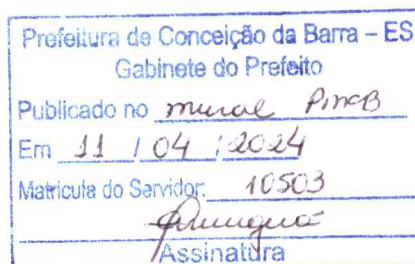 Prefeitura de Conceição da Barra – ES
Gabinete do Prefeito
Publicado no mural PMCB
Em 11 / 04 / 2024
Matricula do Servidor: 10503
Assinatura